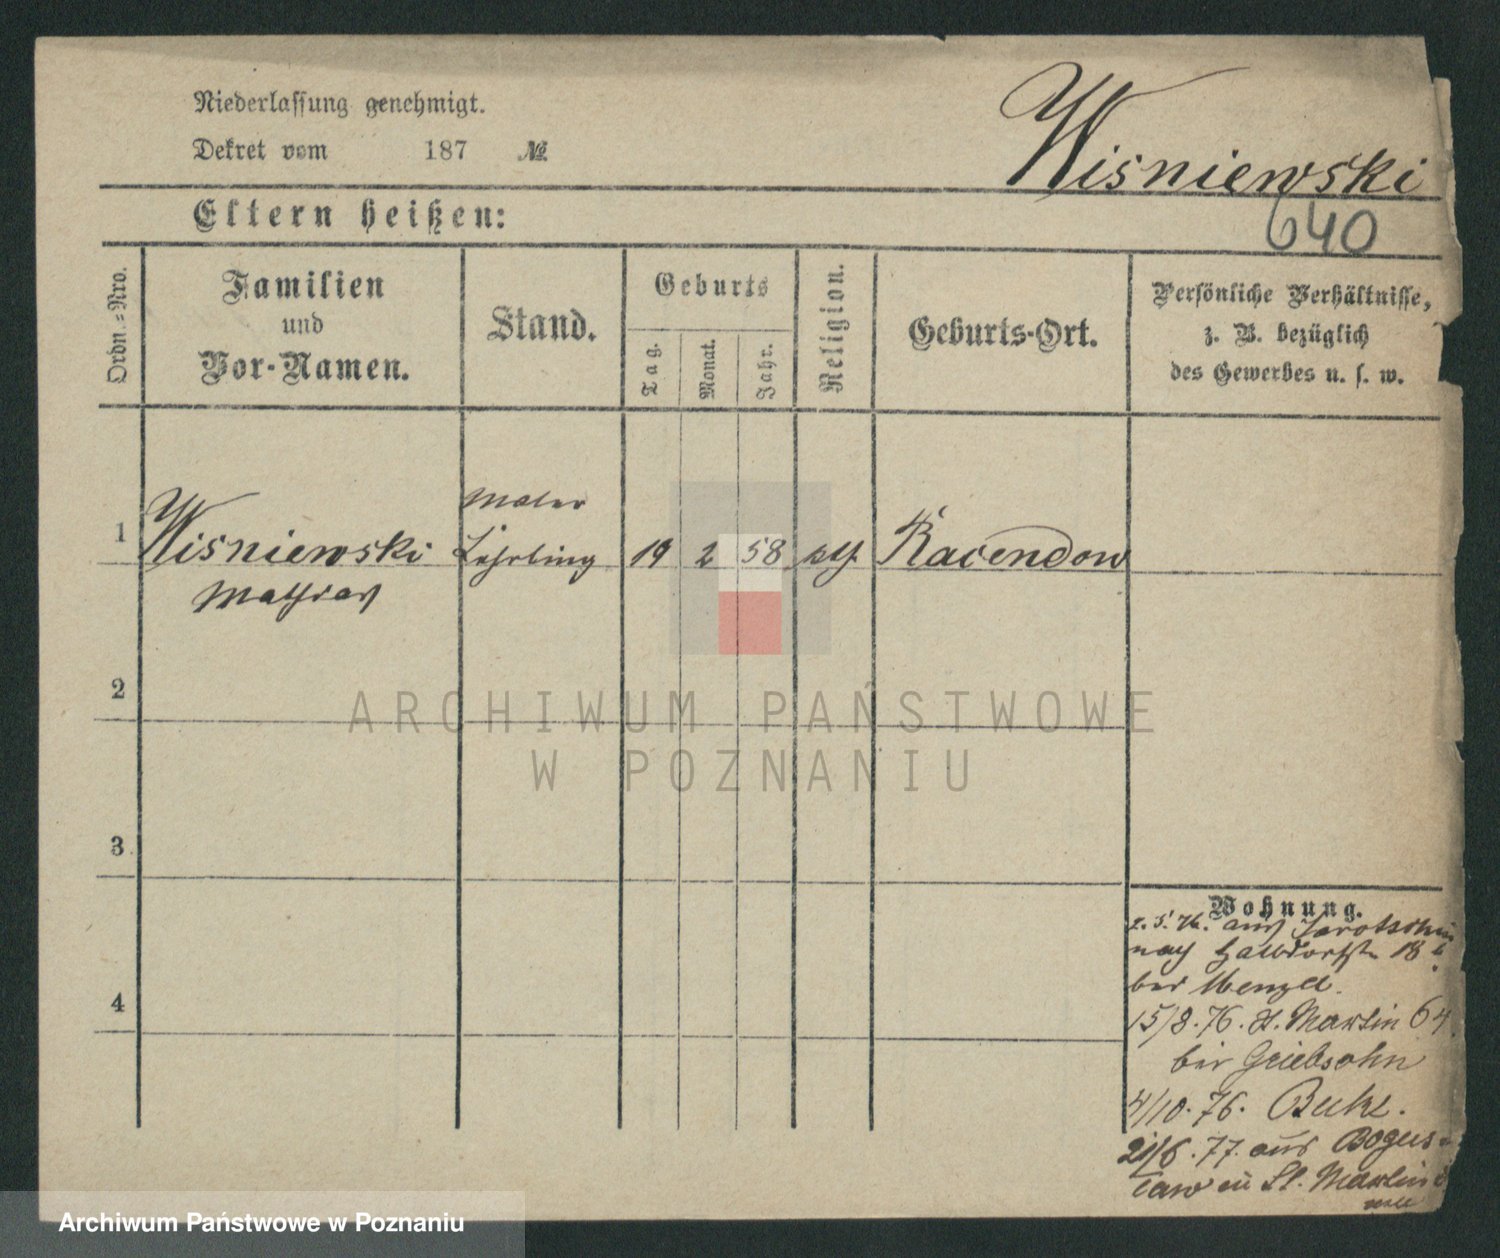 Niederlassung genehmigt.
Dekret vom 187 №
Wisniewski
640
Eltern heißen:
Ordn.=Nro.
Familien
und
Vor-Namen.
Stand.
Geburts
Tag.
Monat.
Jahr.
Religion.
Geburts-Ort.
Persönliche Verhältnisse,
z. B. bezüglich
des Gewerbes u. s. w.
1
Wisniewski
Mathias
Maler
Lehrling
19 2 58 kth Racendow
2
3
4
Wohnung.
5. 76. aus Jarotschin
nach Halbdorfstr. 18
bei Menzel.
15/8. 76. St. Martin 64
bei Griebsohn
4/10. 76. Buk.
21/6. 77. aus Bogus-
law St. Martin
ARCHIWUM PAŃSTWOWE
W POZNANIU
Archiwum Państwowe w Poznaniu